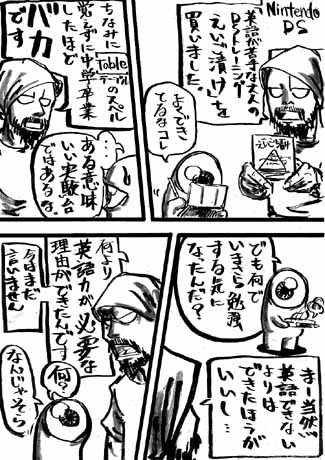 Nintendo
DS
英語が苦手な大人の
DSトレーニング
えいご漬けを
買いました。
よくでき
てるなコレ
ちなみに
Table
テーブル
のスペル
覚えずに中学卒業
したほど
バカ
です
…
ある意味
いい実験台
ではあるな。
でも何で
いまさら勉強
する気に
なったんだ?
まー当然
英語できない
よりは
できたほうが
いいし…
何より
英語力が必要な
理由ができたんです
今はまだ
言いません
何?
なんじゃそら